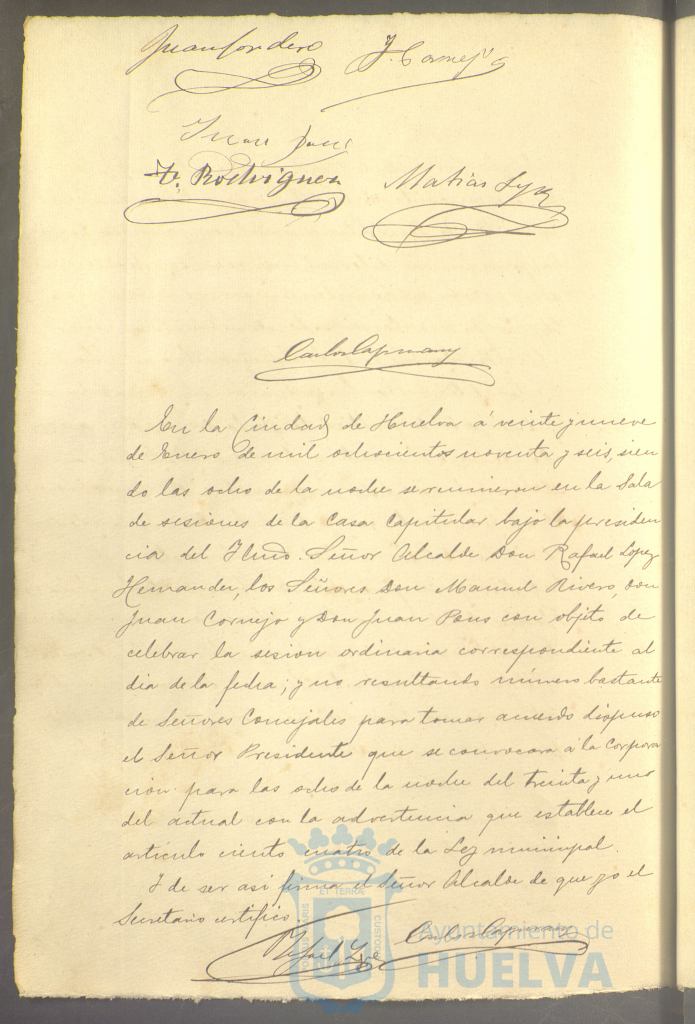 Juan Cordero J. Cornejo
Juan Pons
F. Rodriguez
Matias
Carlos Capmany
En la Ciudad de Huelva á veinte y nueve
de Enero de mil ochocientos noventa y seis, sien
do las ocho de la noche se reunieron en la Sala
de sesiones de la Casa Capitular bajo la presiden
cia del Iltmo. Señor Alcalde Don Rafael Lopez
Hernandez, los Señores Don Manuel Rivero, Don
Juan Cornejo y Don Juan Pons con objeto de
celebrar la sesion ordinaria correspondiente al
dia de la fecha; y no resultando número bastante
de Señores Concejales para tomar acuerdo dispuso
el Señor Presidente que se convocara á la Corpora
cion para las ocho de la noche del treinta y uno
del actual con la advertencia que establece el
articulo ciento cuatro de la Ley municipal.
I de ser asi firma el Señor Alcalde de que yo el
Secretario certifico.
Rafael Carlos Capmany
ET TERRA
CUSTODIA
Ayuntamiento de
HUELVA